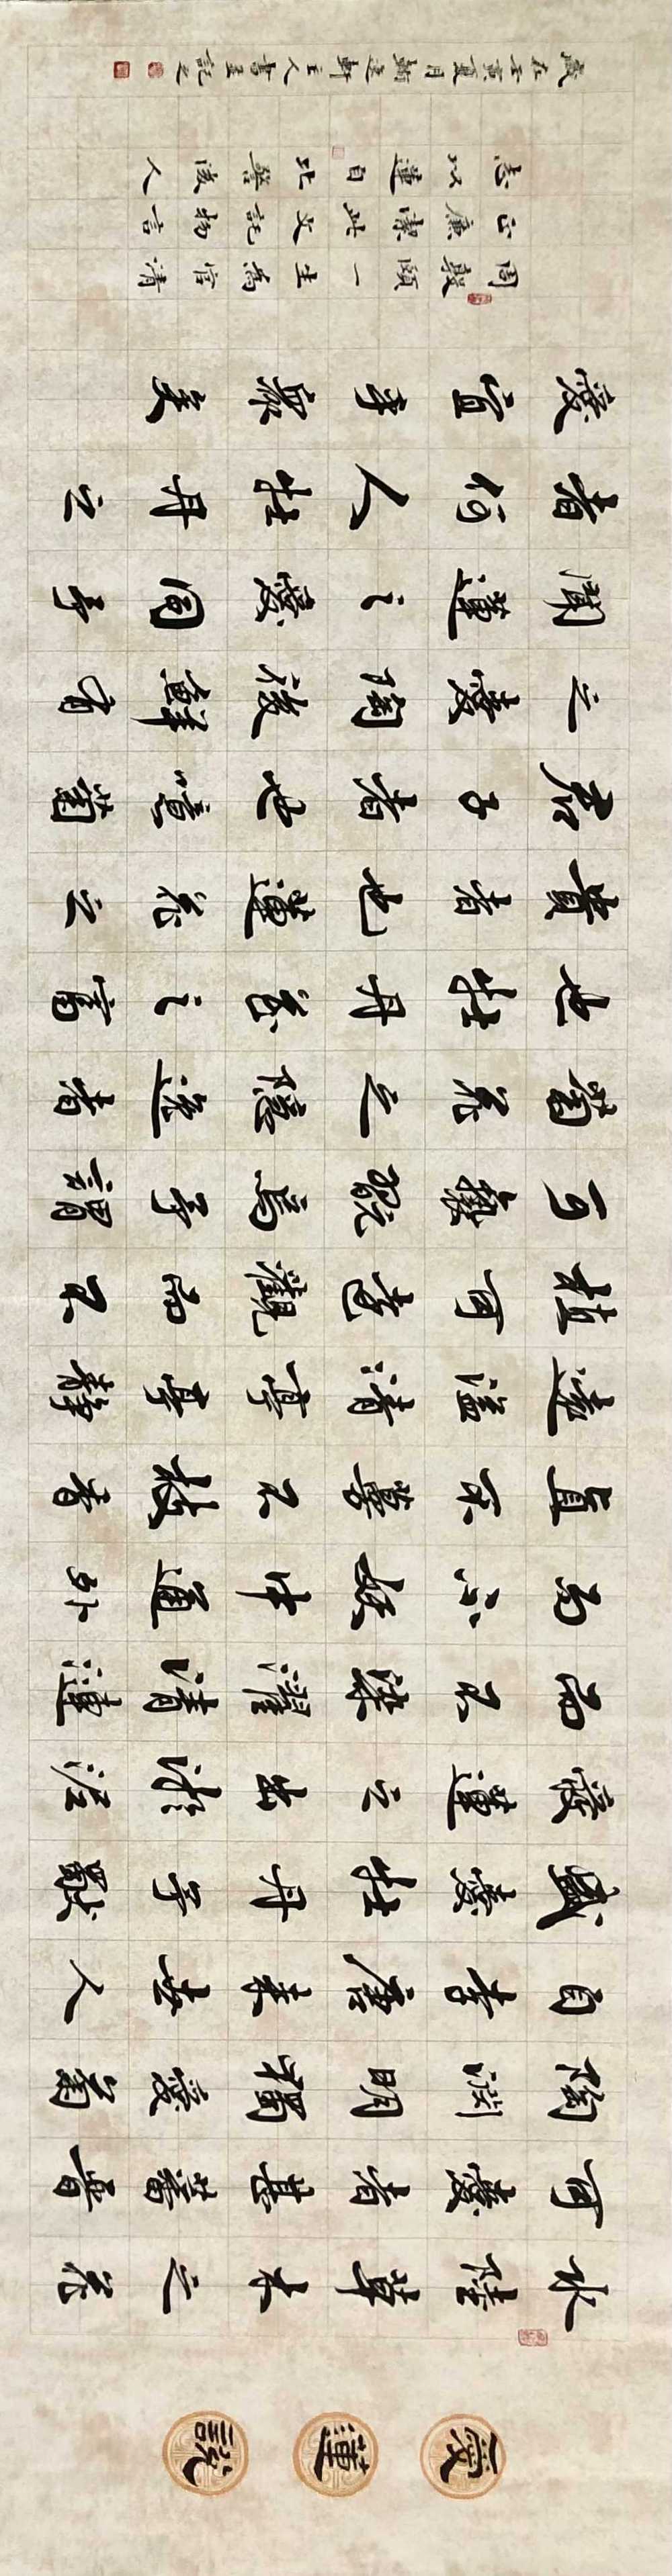 愛蓮說
水陸草木之花
可愛者甚蕃晉
陶淵明獨愛菊
自李唐来世人
盛愛牡丹予獨
愛蓮之出淤泥
而不染濯清漣
而不妖中通外
直不蔓不枝香
遠益清亭亭靜
植可遠觀而不
可褻翫焉予謂
菊花之隱逸者
也牡丹花之富
貴者也蓮花之
君子者也噫菊
之愛陶後鮮有
聞蓮之愛同予
者何人牡丹之
愛宜乎眾矣
周敦頤一生為官清
正廉潔此文託物言
志以蓮自比警後人
歲在壬寅夏月翰逸軒主人書並記之